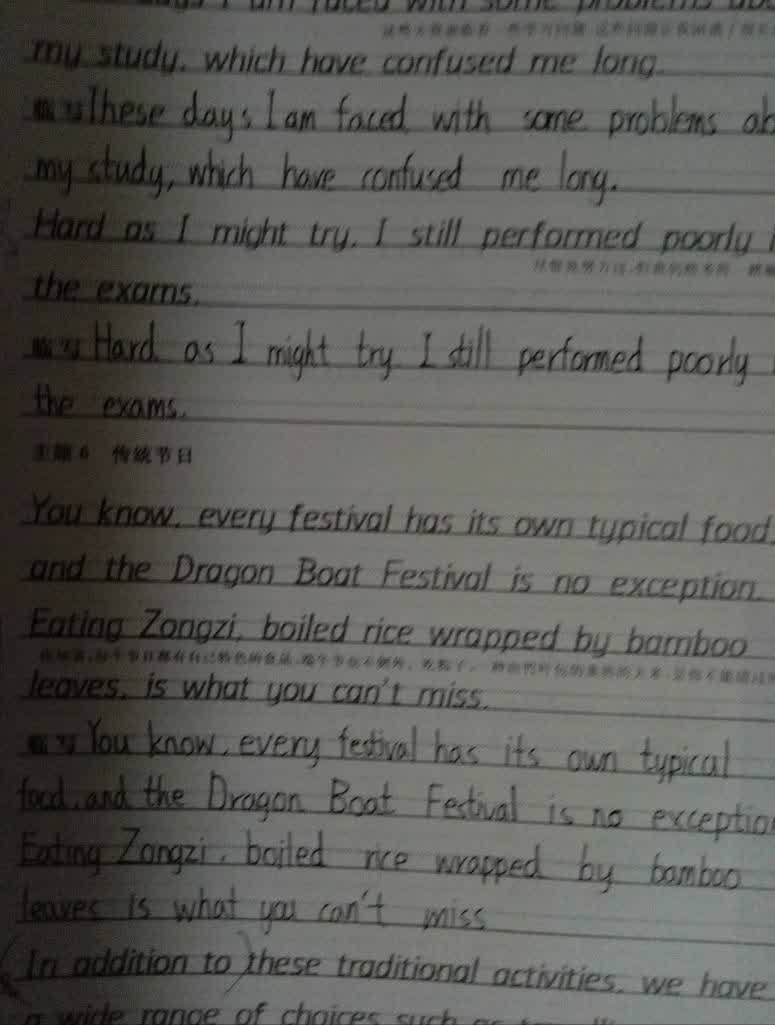 I am faced with some problems
my study, which have confused me long.
These days I am faced with some problems
my study, which have confused me long.
Hard as I might try, I still performed poorly
the exams.
Hard as I might try I still performed poorly
the exams.
主题6 传统节日
You know, every festival has its own typical food,
and the Dragon Boat Festival is no exception.
Eating Zongzi, boiled rice wrapped by bamboo
leaves, is what you can't miss.
You know, every festival has its own typical
food, and the Dragon Boat Festival is no exceptio
Eating Zongzi, boiled rice wrapped by bamboo
leaves is what you can't miss
In addition to these traditional activities, we have
a wide range of choices such as